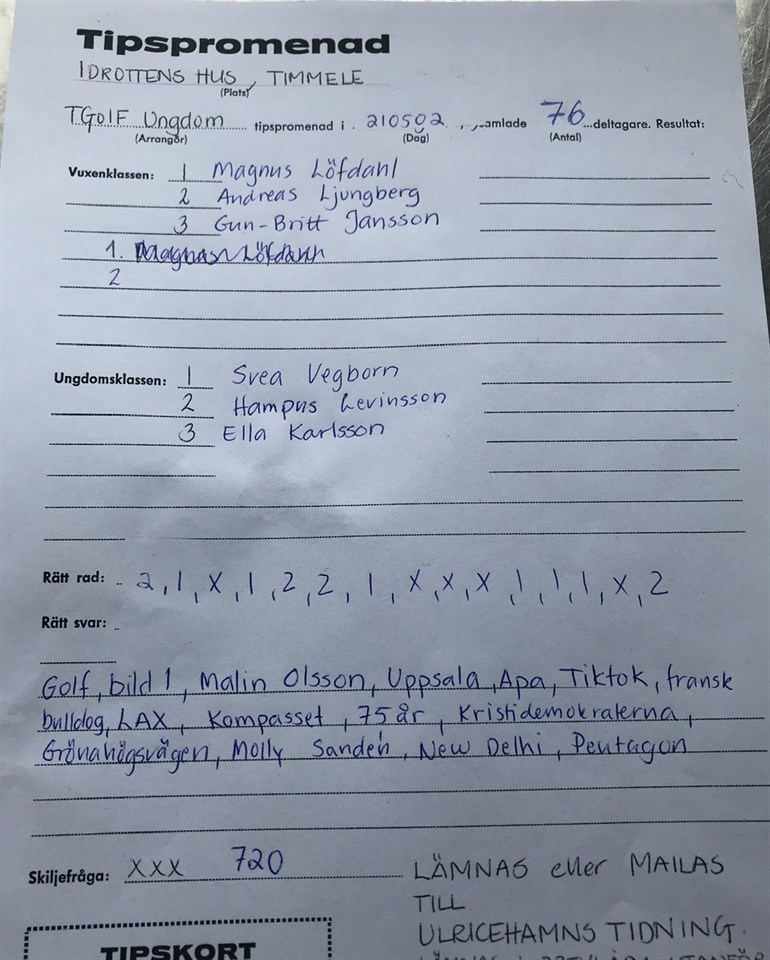 Tipspromenad
IDROTTENS HUS, TIMMELE
(Plats)
TGolF Ungdom tipspromenad i. 210502 , ,amlade 76 deltagare. Resultat:
(Arrangör) (Dag) (Antal)
Vuxenklassen: 1 Magnus Löfdahl
2 Andreas Ljungberg
3 Gun-Britt Jansson
1. Magnus Löfdahl
2
Ungdomsklassen: 1 Svea Vegborn
2 Hampus Levinsson
3 Ella Karlsson
Rätt rad: 2, 1, X, 1, 2, 2, 1, X, X, X, 1, 1, 1, X, 2
Rätt svar:
Golf, bild 1, Malin Olsson, Uppsala, Apa, Tiktok, fransk
bulldog, LAX, Kompasset, 75 år, Kristdemokraterna,
Grönahögsvägen, Molly Sandén, New Delhi, Pentagon
Skiljefråga: XXX 720
LÄMNAS eller MAILAS
TILL
ULRICEHAMNS TIDNING.
TIPSKORT